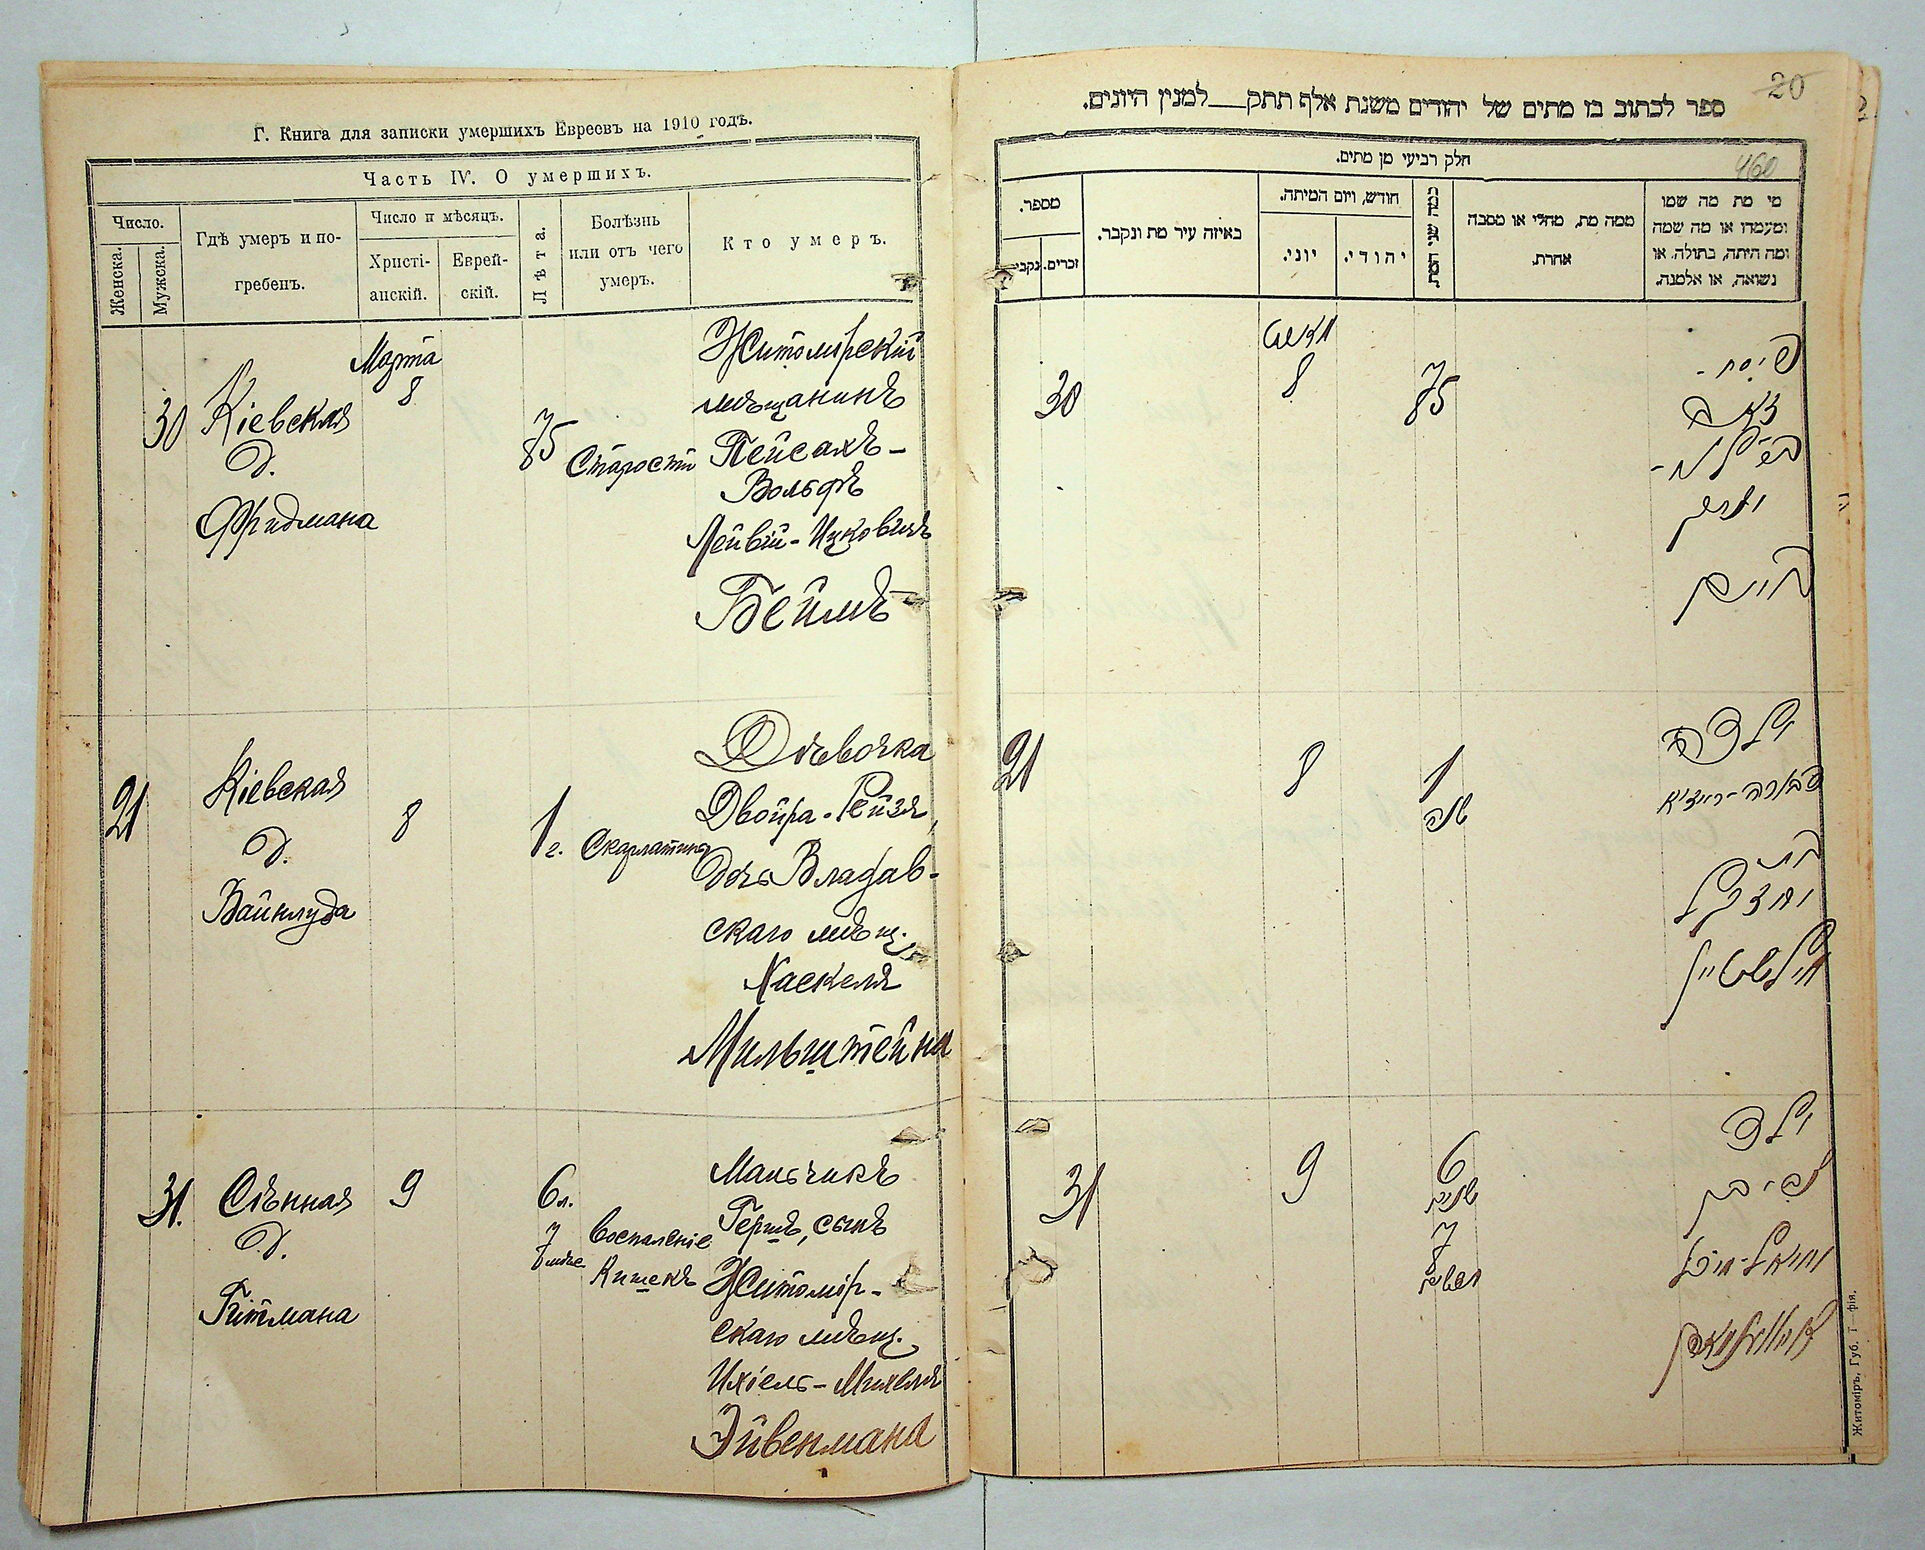 Г. Книга для записки умершихъ Евреевъ на 1910 годъ.
Часть IV. О умершихъ.
Число.
Женска.
Мужска.
Гдѣ умеръ и по-
гребенъ.
Число и мѣсяцъ.
Христі-
анскій.
Еврей-
скій.
Лѣта.
Болѣзнь
или отъ чего
умеръ.
Кто умеръ.
30
Кіевская
д.
Фридмана
Марта
8
75
Старости
Житомірскій
мѣщанинъ
Пейсахъ-
Вольфъ
Лейбъ-Ицковичъ
Беймъ
21
Кіевская
д.
8
1 г.
Скарлатина
Дѣвочка
Двойра-Рейзя,
дочь Владав-
скаго мѣщ.
Хаскеля
Мильштейна
31.
Сѣнная
д.
Гитмана
9
6 л.
7 мѣс
Воспаленіе
Кишекъ
Мальчикъ
Гершъ, сынъ
Житомір-
скаго мѣщ.
Ихіель-Михеля
Эйвенмана
20
ספר לכתוב בו מתים של יהודים משנת אלף תתק___למנין היונים.
460
חלק רביעי מן מתים.
מספר.
נקבי
זכרים.
באיזה עיר מת ונקבר.
חודש, ויום המיתה.
יוני.
יהודי.
כמה שני המת
ממה מת, מחלי או מסבה
אחרת.
מי מת מה שמו
ומעמדו או מה שמה
ומה היתה, בתולה או
נשואה, או אלמנה.
30
מארט
8
75
פייסח-
21
8
1
שנה
ילדה
דבורה-רייזיא
בת
יחזקאל
מילשטיין
31
9
6
שנים
7
חדשים
ילד
יחיאל-מיכל
Житомиръ, Губ. Т—фія.